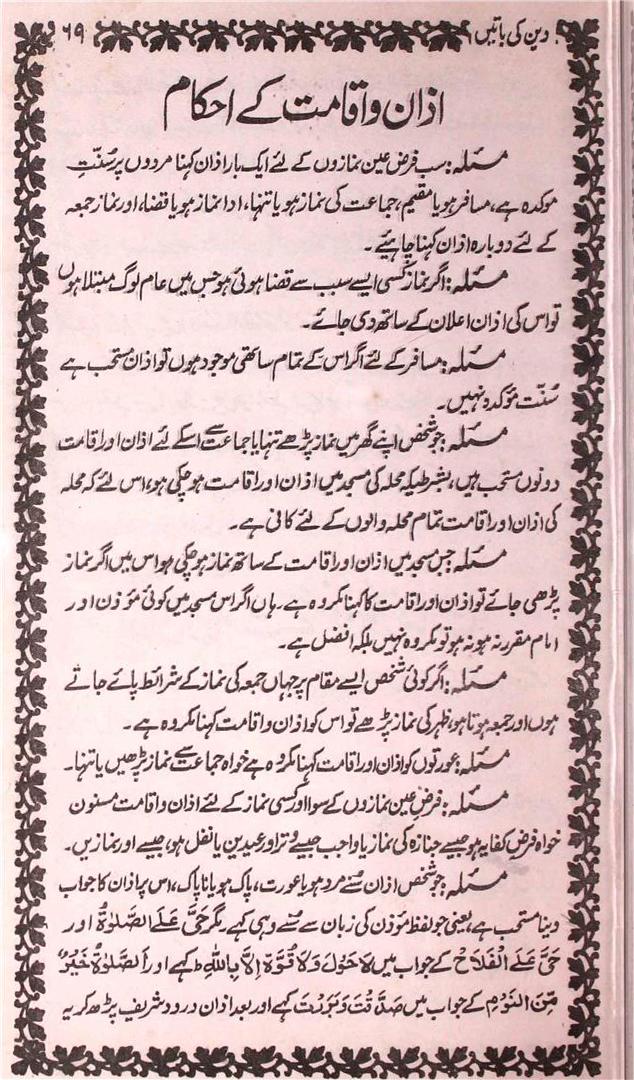 دین کی باتیں ۶۹
اذان واقامت کے احکام
مسئلہ: سب فرض عین نمازوں کے لئے ایک بار اذان کہنا مردوں پر سُنّتِ
موکدہ ہے، مسافر ہو یا مقیم، جماعت کی نماز ہو یا تنہا، ادا نماز ہو یا قضا، اور نماز جمعہ
کے لئے دوبارہ اذان کہنا چاہیئے۔
مسئلہ: اگر نماز کسی ایسے سبب سے قضا ہوئی ہو جس میں عام لوگ مبتلا ہوں
تو اس کی اذان اعلان کے ساتھ دی جائے۔
مسئلہ: مسافر کے لئے اگر اس کے تمام ساتھی موجود ہوں تو اذان مستحب ہے
سُنّت موکدہ نہیں۔
مسئلہ: جو شخص اپنے گھر میں نماز پڑھے تنہا یا جماعت سے اسکے لئے اذان اور اقامت
دونوں مستحب ہیں، بشرطیکہ محلہ کی مسجد میں اذان اور اقامت ہو چکی ہو، اس لئے کہ محلہ
کی اذان اور اقامت تمام محلہ والوں کے لئے کافی ہے۔
مسئلہ: جس مسجد میں اذان اور اقامت کے ساتھ نماز ہو چکی ہو اس میں اگر نماز
پڑھی جائے تو اذان اور اقامت کا کہنا مکروہ ہے۔ ہاں اگر اس مسجد میں کوئی مؤذن اور
امام مقرر نہ ہو نہ ہو تو مکروہ نہیں بلکہ افضل ہے۔
مسئلہ: اگر کوئی شخص ایسے مقام پر جہاں جمعہ کی نماز کے شرائط پائے جاتے
ہوں اور جمعہ ہوتا ہو، ظہر کی نماز پڑھے تو اس کو اذان و اقامت کہنا مکروہ ہے۔
مسئلہ: عورتوں کو اذان اور اقامت کہنا مکروہ ہے خواہ جماعت سے نماز پڑھیں یا تنہا۔
مسئلہ: فرض عین نمازوں کے سوا اور کسی نماز کے لئے اذان و اقامت مسنون
خواہ فرض کفایہ ہو جیسے جنازہ کی نماز یا واجب جیسے وتر اور عیدین یا نفل ہو، جیسے اور نمازیں۔
مسئلہ: جو شخص اذان سُنے مرد ہو یا عورت، پاک ہو یا ناپاک، اس پر اذان کا جواب
دینا مستحب ہے، یعنی جو لفظ مؤذن کی زبان سے سُنے وہی کہے مگر حَیَّ عَلَی الصَّلٰوۃُ اور
حَیَّ عَلَی الْفَلَاحْ کے جواب میں لَاحَوْلَ وَلَا قُوَّۃَ اِلَّا بِاللّٰہِ کہے اور اَلصَّلٰوۃُ خَیْرٌ
مِّنَ النَّوْمِ کے جواب میں صَدَّقْتَ وَبَرَرْتَ کہے اور بعد اذان درود شریف پڑھ کر یہ